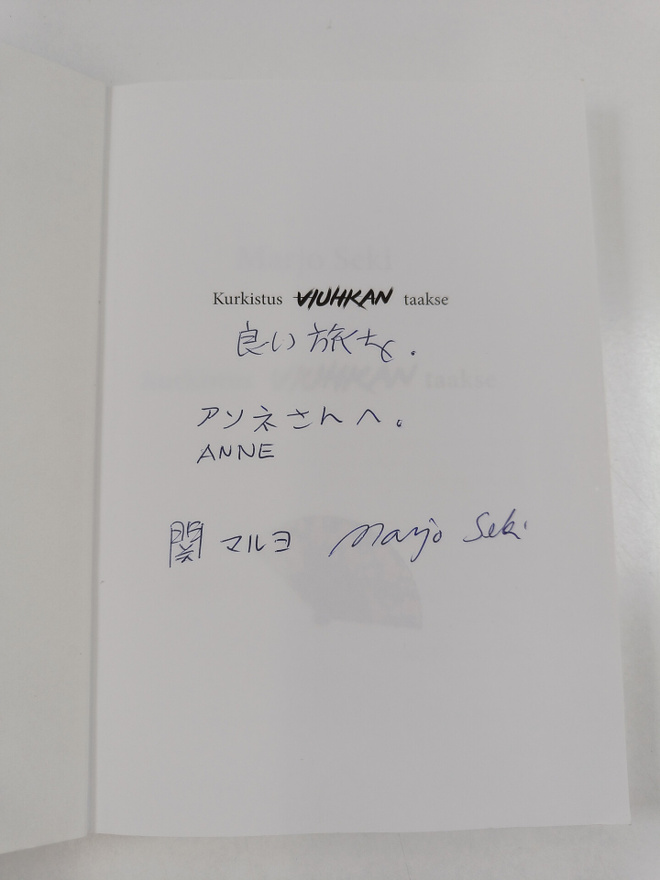 Kurkistus VIUHKAN taakse
良い旅を.
アンネさんへ。
ANNE
関 マルヨ Marjo Seki